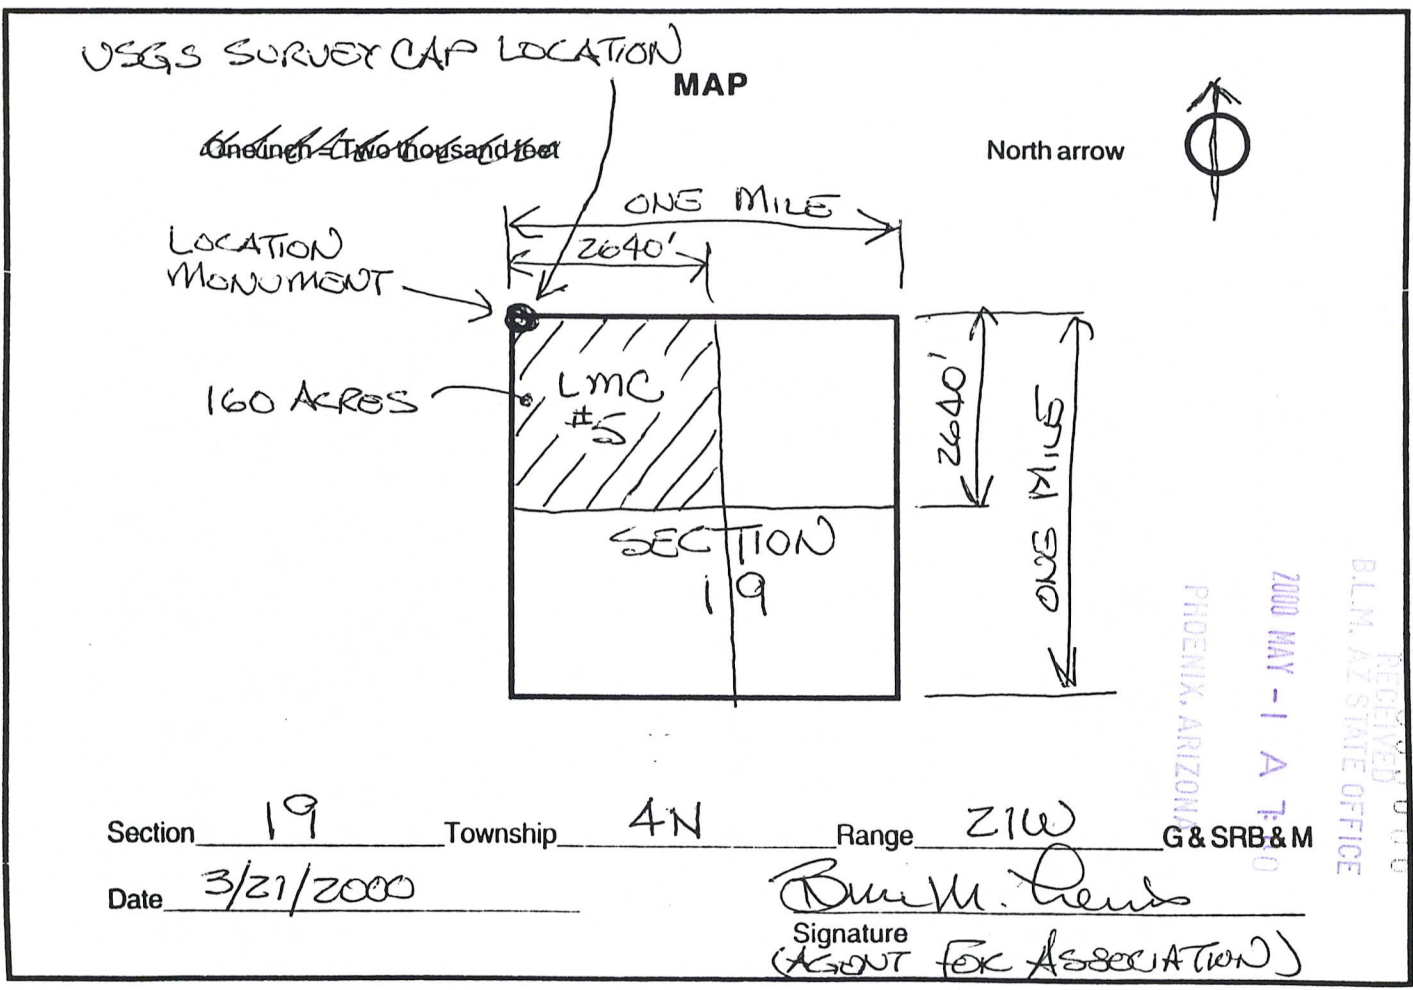 USGS SURVEY CAP LOCATION
MAP
One inch = Two thousand feet
North arrow
ONE MILE
2640'
LOCATION
MONUMENT
160 ACRES
LMC
#5
2640'
ONE MILE
SECTION
19
RECEIVED
B.L.M. AZ STATE OFFICE
2000 MAY -1 A
PHOENIX, ARIZONA
Section 19 Township 4N Range 21W G & SRB & M
Date 3/21/2000
Signature
(AGENT FOR ASSOCIATION)